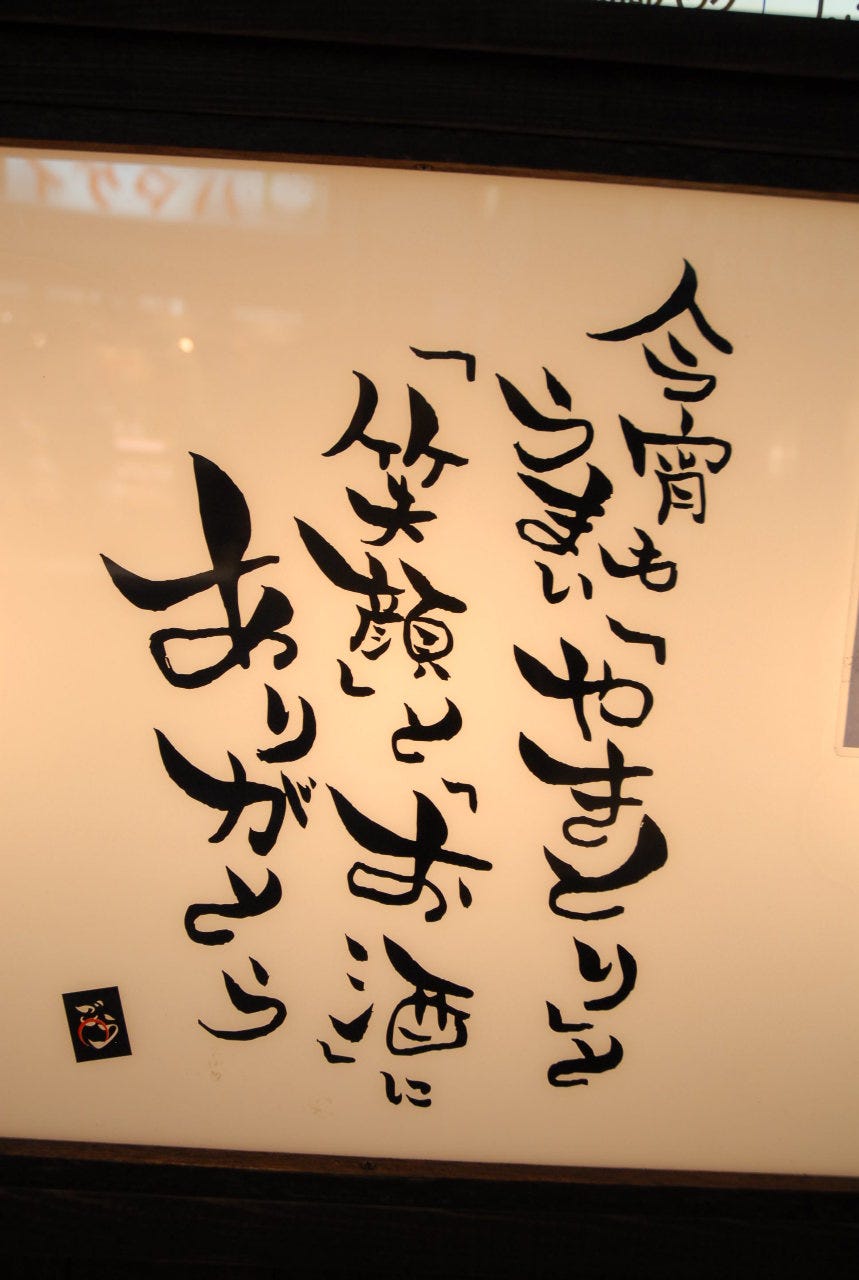 今宵も
うまい「やきとり」と
「笑顔」と「お酒」に
ありがとう